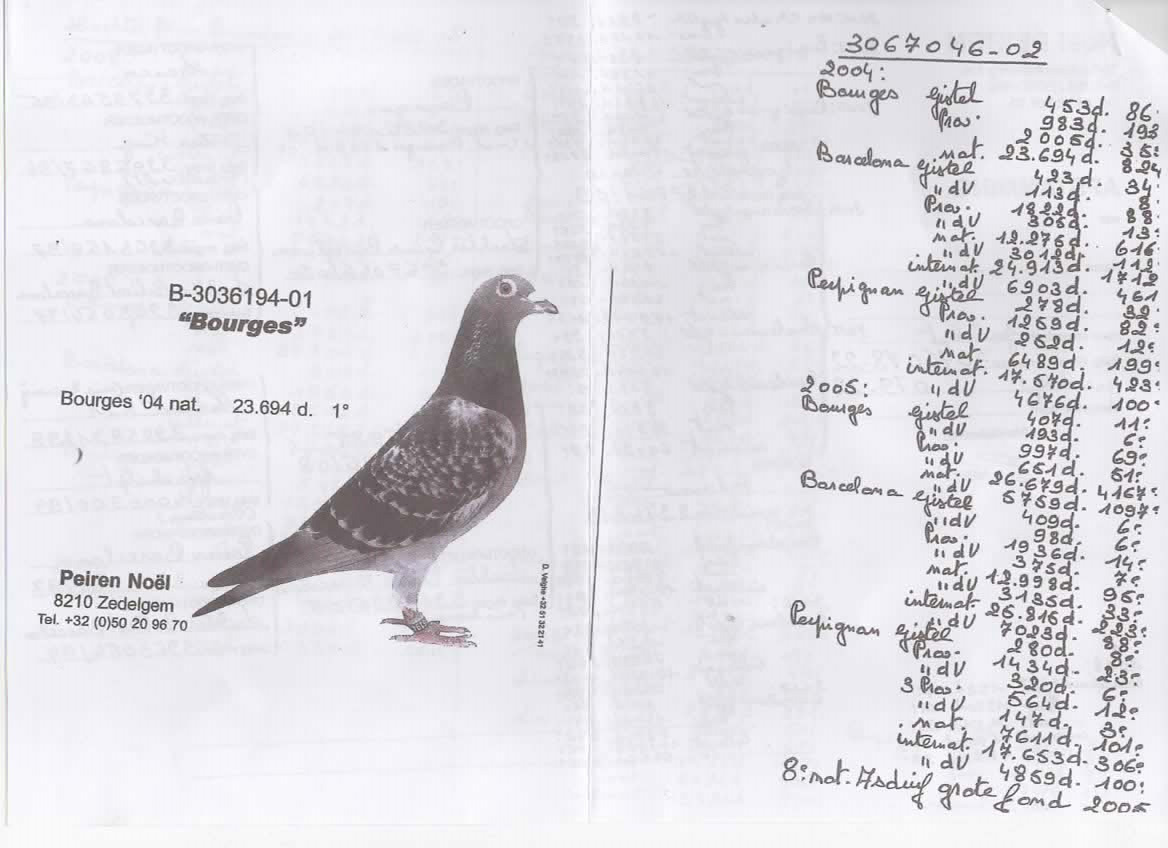 B-3036194-01
“Bourges”
Bourges '04 nat. 23.694 d. 1°
Peiren Noël
8210 Zedelgem
Tel. +32 (0)50 20 96 70
D. Veghe +32 51 32 21 41
3067046-02
2004:
Bourges gistel 453d. 86.
Prov. 983d. 193
2005d. 35:
nat. 23.694d. 824
Barcelona gistel 423d. 34.
"dV 113d. 8.
Prov. 1822d. 88.
"dV 305d. 13:
nat. 12.276d. 616.
"dV 3012d. 112.
internat. 24.913d. 1712
"dV 6903d. 461
Perpignan gistel 278d. 39:
Prov. 1259d. 82:
"dV 252d. 12:
nat. 6489d. 199:
internat. 17.570d. 423:
"dV 4676d. 100:
2005:
Bourges gistel 407d. 11:
"dV 193d. 6:
Prov. 997d. 69:
"dV 651d. 51:
nat. 26.679d. 4167:
"dV 5759d. 1097:
Barcelona gistel 409d. 6:
"dV 98d. 6:
Prov. 1936d. 14:
"dV 375d. 7:
nat. 12.998d. 95:
"dV 3135d. 33:
internat. 25.815d. 223:
"dV 7023d. 88:
Perpignan gistel 280d. 8:
Prov. 1434d. 23:
"dV 320d. 6:
3 Prov. 564d. 12:
"dV 147d. 3:
nat. 7611d. 101:
internat. 17.653d. 306:
"dV 4859d. 100:
8: nat. Asduif grote fond 2005